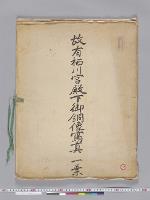 故有栖川宮殿下御銅像寫真 一葉